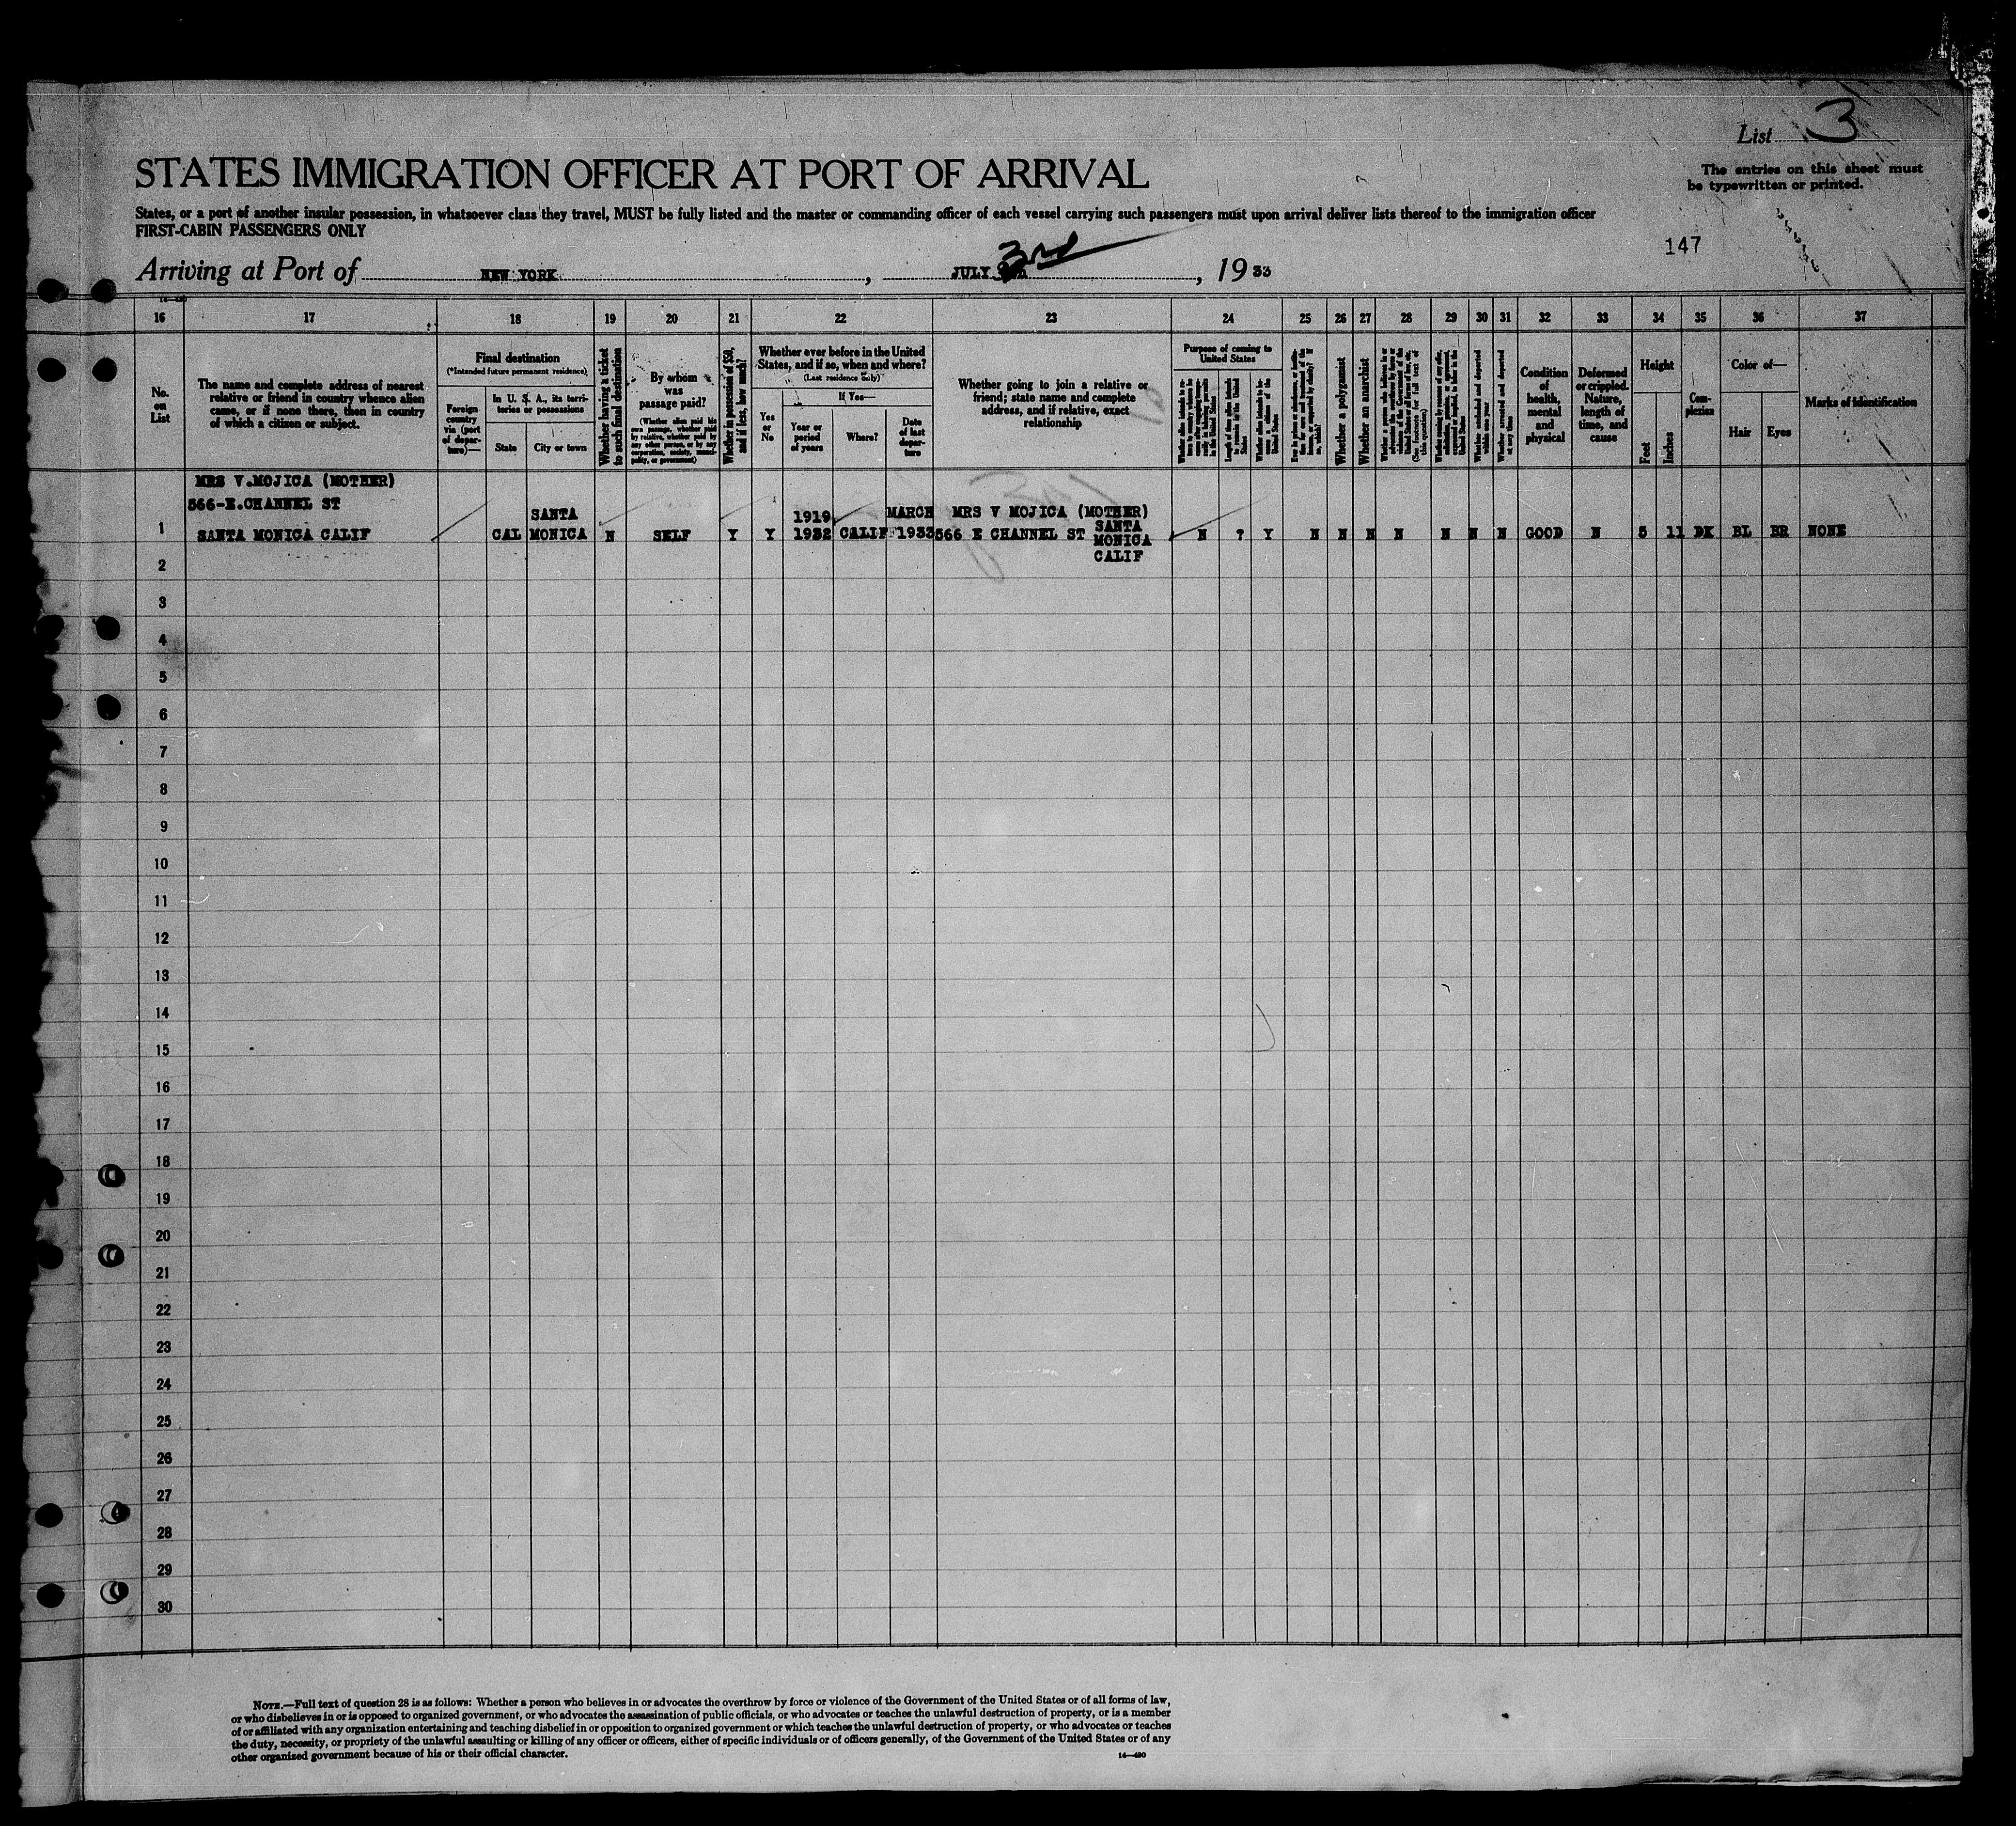 List 3
STATES IMMIGRATION OFFICER AT PORT OF ARRIVAL
The entries on this sheet must
be typewritten or printed.
States, or a port of another insular possession, in whatsoever class they travel, MUST be fully listed and the master or commanding officer of each vessel carrying such passengers must upon arrival deliver lists thereof to the immigration officer
FIRST-CABIN PASSENGERS ONLY
147
Arriving at Port of NEW YORK, JULY 3rd, 1933
16 17 18 19 20 21 22 23 24 25 26 27 28 29 30 31 32 33 34 35 36 37
No.
on
List
The name and complete address of nearest
relative or friend in country whence alien
came, or if none there, then in country
of which a citizen or subject.
Final destination
(*Intended future permanent residence)
Foreign
country
via (port
of depar-
ture)—
In U. S. A., its terri-
tories or possessions
State
City or town
Whether having a ticket
to such final destination
By whom
was
passage paid?
(Whether alien paid his
own passage, whether paid
by relative, whether paid by
any other person, or by any
corporation, society, munici-
pality, or government)
Whether in possession of $50,
and if less, how much?
Whether ever before in the United
States, and if so, when and where?
(Last residence only)
Yes
or
No
If Yes—
Year or
period
of years
Where?
Date
of last
depar-
ture
Whether going to join a relative or
friend; state name and complete
address, and if relative, exact
relationship
Purpose of coming to
United States
Length of time alien intends
to remain in the United
States
Whether alien intends to be-
come a citizen of the
United States
Whether a polygamist
Whether an anarchist
(See footnote for full text of
this question)
Whether excluded and deported
within one year
Whether arrested and deported
at any time
Condition
of
health,
mental
and
physical
Deformed
or crippled.
Nature,
length of
time, and
cause
Height
Feet
Inches
Com-
plexion
Color of—
Hair
Eyes
Marks of identification
MRS V.MOJICA (MOTHER)
566-E.CHANNEL ST
1 SANTA MONICA CALIF
CAL
SANTA
MONICA
N
SELF
Y
Y
1919
1932
CALIF
MARCH
1933
MRS V MOJICA (MOTHER)
566 E CHANNEL ST SANTA
MONICA
CALIF
N ? Y N N N N N N N GOOD N 5 11 DK BL BR NONE
2
3
4
5
6
7
8
9
10
11
12
13
14
15
16
17
18
19
20
21
22
23
24
25
26
27
28
29
30
NOTE.—Full text of question 28 is as follows: Whether a person who believes in or advocates the overthrow by force or violence of the Government of the United States or of all forms of law,
or who disbelieves in or is opposed to organized government, or who advocates the assassination of public officials, or who advocates or teaches the unlawful destruction of property, or is a member
of or affiliated with any organization entertaining and teaching disbelief in or opposition to organized government or which teaches the unlawful destruction of property, or who advocates or teaches
the duty, necessity, or propriety of the unlawful assaulting or killing of any officer or officers, either of specific individuals or of officers generally, of the Government of the United States or of any
other organized government because of his or their official character.
14—490